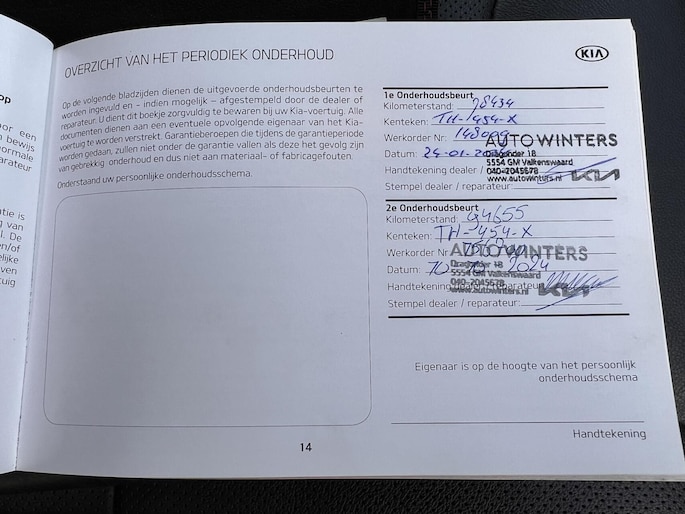 OVERZICHT VAN HET PERIODIEK ONDERHOUD
KIA
Op de volgende bladzijden dienen de uitgevoerde onderhoudsbeurten te
worden ingevuld en – indien mogelijk – afgestempeld door de dealer of
reparateur. U dient dit boekje zorgvuldig te bewaren bij uw Kia-voertuig. Alle
documenten dienen aan een eventuele opvolgende eigenaar van het Kia-
voertuig te worden verstrekt. Garantieberoepen die tijdens de garantieperiode
worden gedaan, zullen niet onder de garantie vallen als deze het gevolg zijn
van gebrekkig onderhoud en dus niet aan materiaal- of fabricagefouten.
Onderstaand uw persoonlijke onderhoudsschema.
1e Onderhoudsbeurt
Kilometerstand: 78434
Kenteken: TH-454-X
Werkorder Nr:
AUTO WINTERS
Datum: 24-01-
Dragonder 18
5554 GM Valkenswaard
Handtekening dealer /
040-2045578
www.autowinters.nl
KIA
Stempel dealer / reparateur:
2e Onderhoudsbeurt
Kilometerstand: 94655
Kenteken: TH-454-X
Werkorder Nr
AUTO WINTERS
Dragonder 18
Datum: 10 2024
5554 GM Valkenswaard
040-2045578
Handtekening dealer / reparateur
www.autowinters.nl
KIA
Stempel dealer / reparateur:
Eigenaar is op de hoogte van het persoonlijk
onderhoudsschema
Handtekening
14
op
oor een
bewijs
normale
parateur
atie is
van
l. De
en/of
elijke
ven
tuig